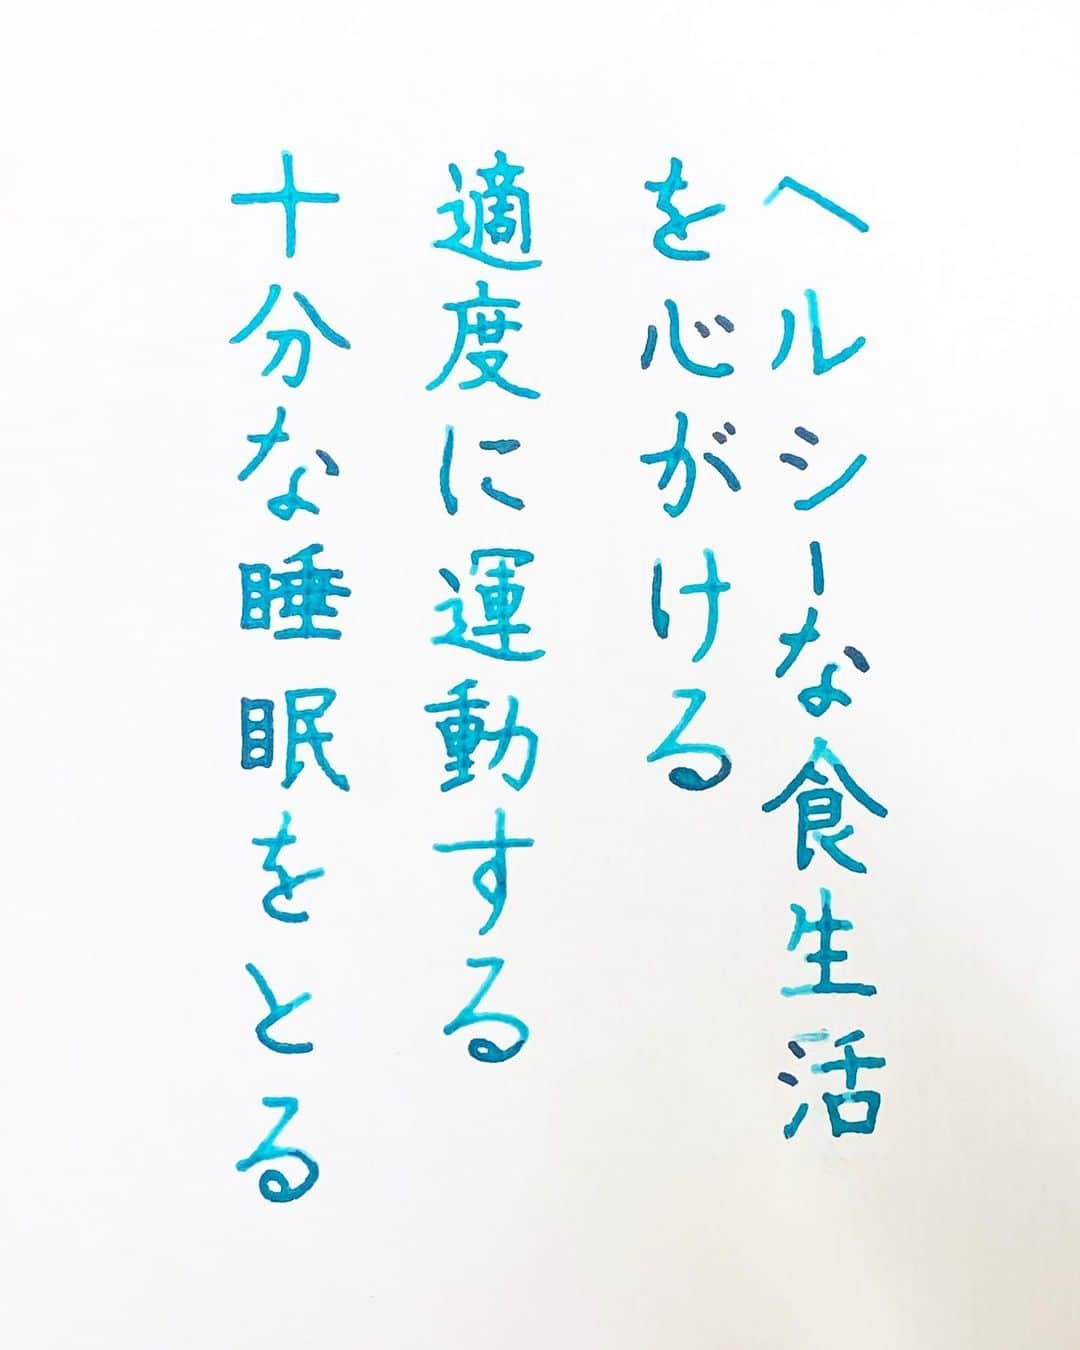 ヘルシーな食生活
を心がける
適度に運動する
十分な睡眠をとる